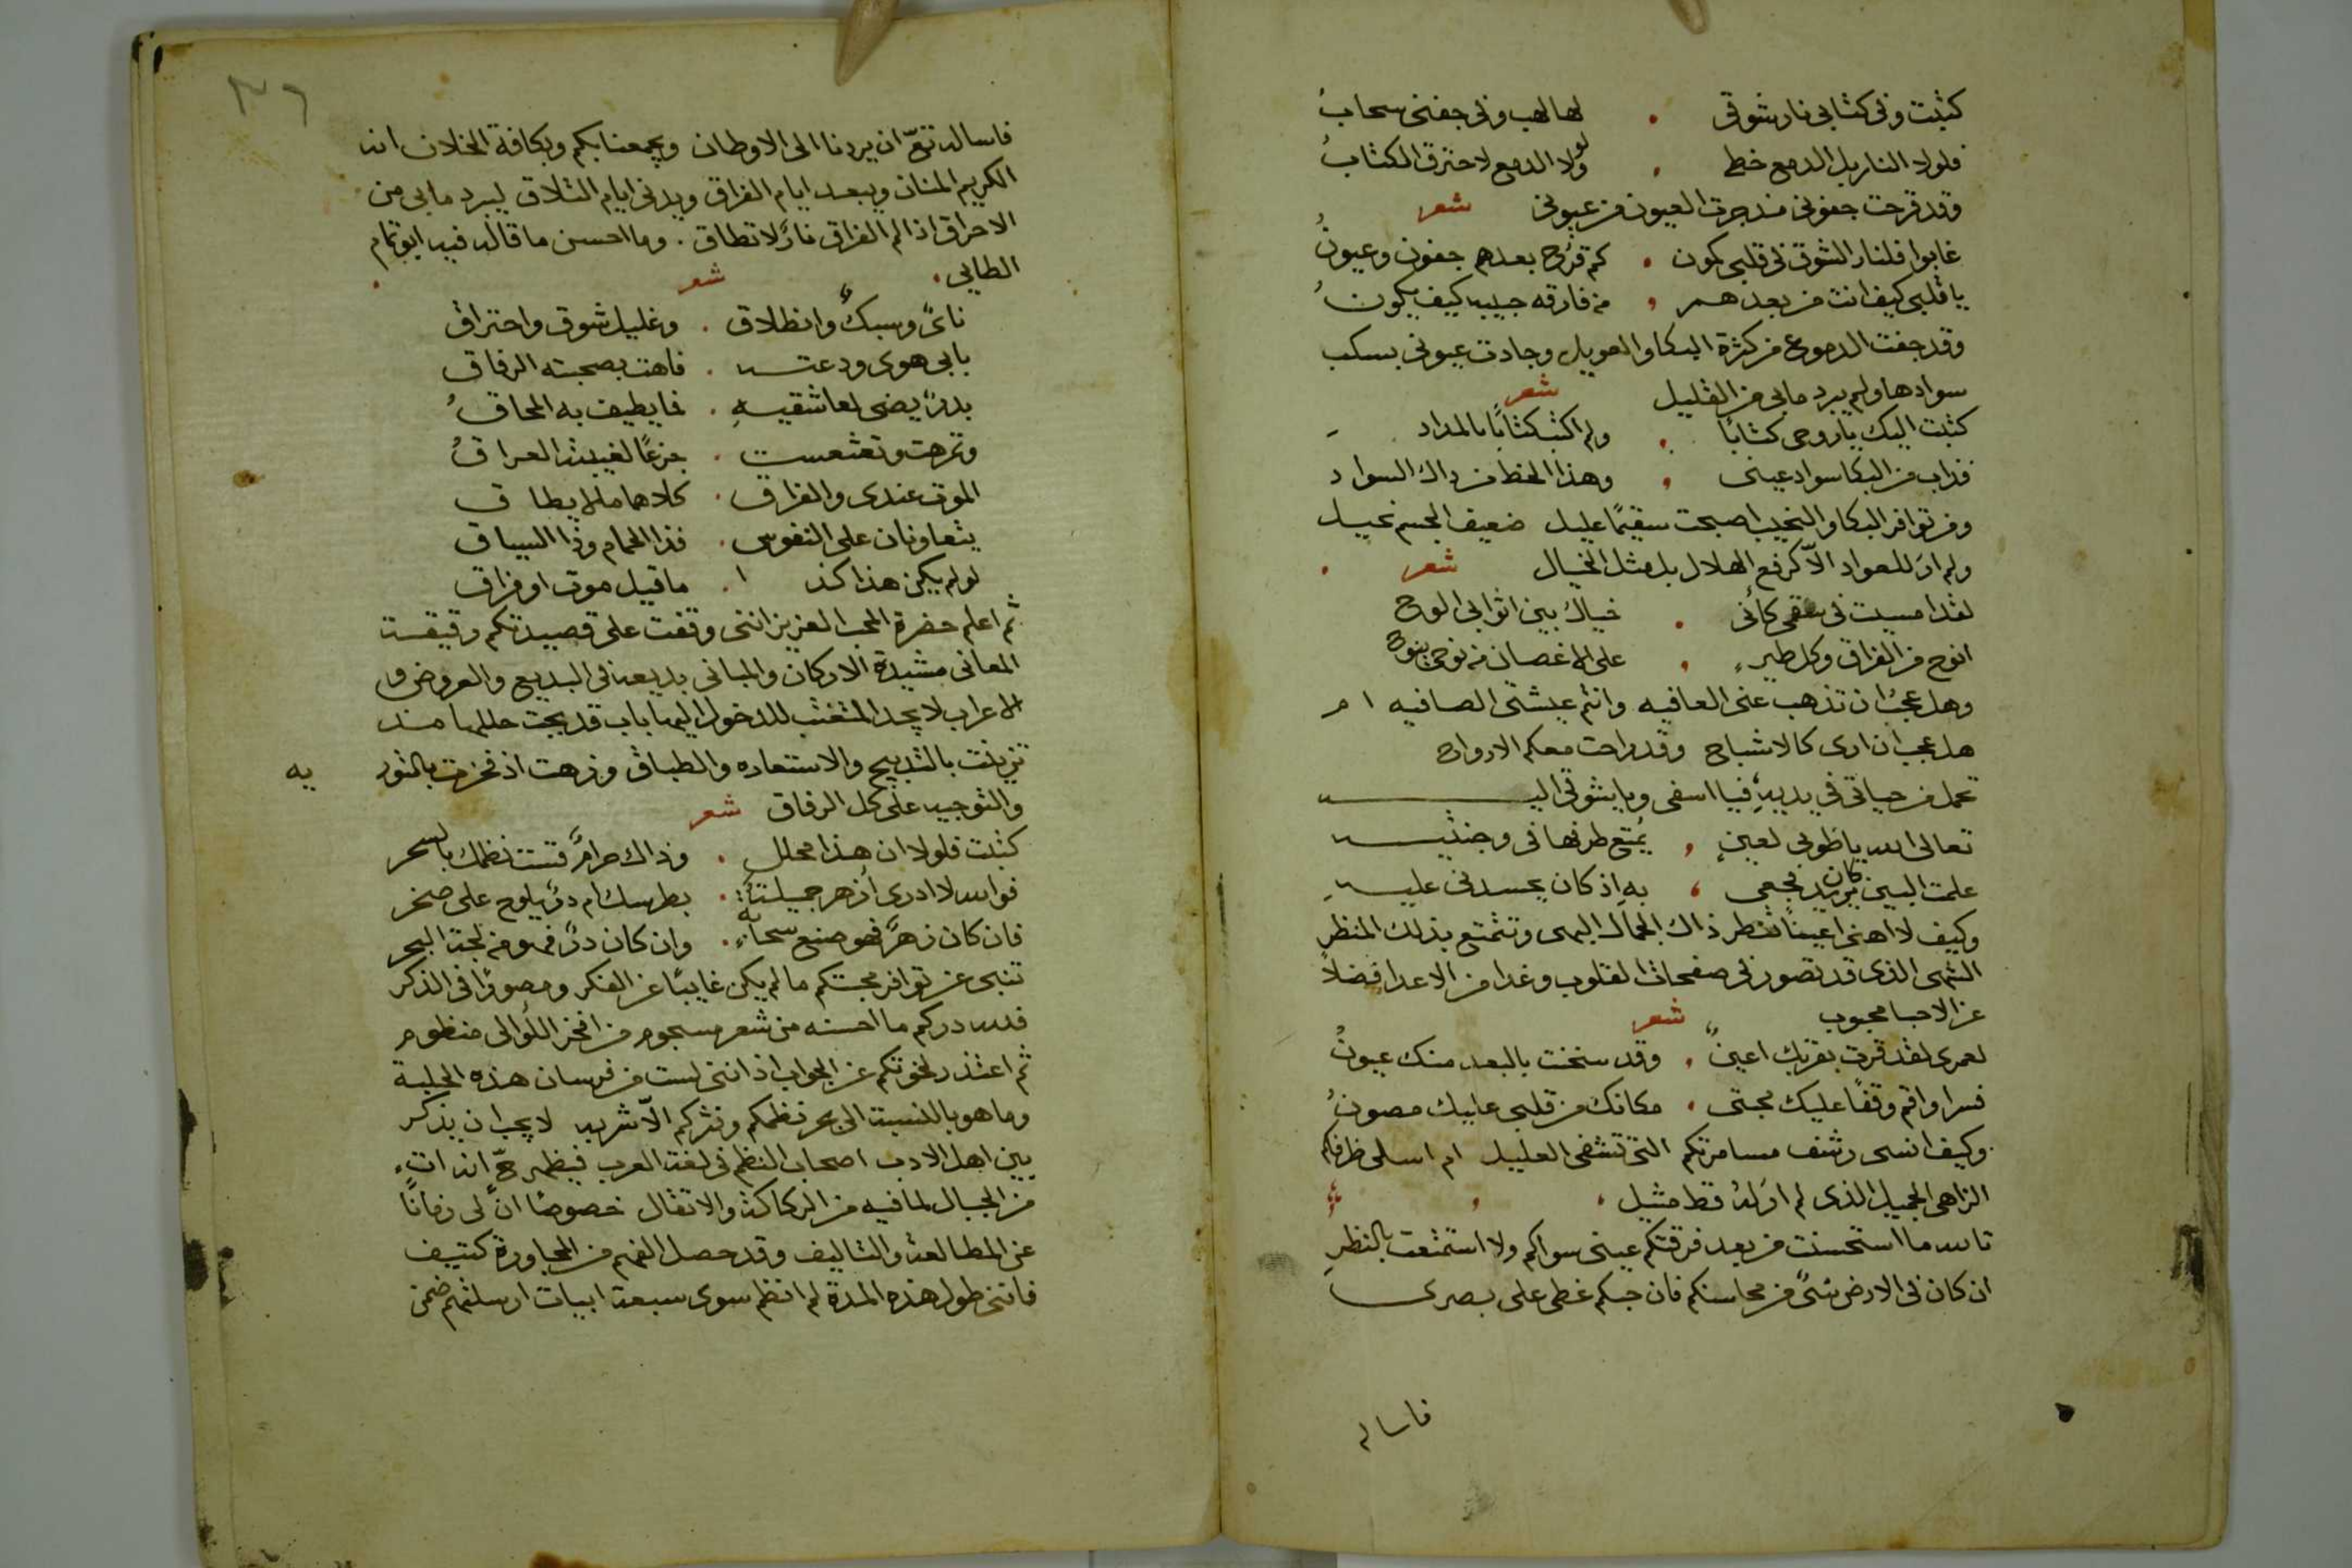 كتبت وفى كتابى نار شوقى . لها لهب وفى جفنى سحابُ
فلولا النار بل الدمع خطى . ولولا الدمع لاحترق الكتابُ
وقد قرحت جفونى منذ جرت العيون من عيونى شعر
غابوا فلنار الشوق فى قلبى كمون . كم قرّح بعدهم جفون وعيونُ
يا قلبى كيف انت من بعدهم . من فارقه حبيبه كيف يكونُ
وقد جفت الدموع من كثرة البكا والعويل وجادت عيونى بسكب
سوادها ولم يبرد مابى من الغليل شعر
كتبت اليك ياروحى كتابًا . ولم اكتب كتابًا بالمداد
فذاب من البكا سواد عينى . وهذا الخط من ذاك السواد
ومن توافر البكا والنحيب اصبحت سقيمًا عليل ضعيف الجسم نحيل
ولم ارَ للعواد الّا كرفع الهلال بل مثل الخيال شعر .
لقد امسيت فى سقمى كأنى . خيالٌ بين اثوابى الوح
انوح من الفراق وكل طيرٍ . على الاغصان من نوحى ينوح
وهل عجبٌ ان تذهب عنى العافيه وانتم عيشتى الصافيه ام
هل عجب ان ارى كالاشباح وقد راحت معكم الارواح
تحمل من حياتى فى يديهِ فيا اسفى ويا شوقى اليه
تعالى الله ياطوبى لعينٍ . يُمتع طرفها فى وجنتيه
علمت البين كان يريد فجعى . بهِ اذ كان يحسدنى عليهِ
وكيف لا اهنى اعينًا تنظر ذاك الجمال البهى وتتمتع بذلك المنظر
الشهى الذى قد تصور فى صفحات القلوب وغدا من الاعدا فضلًا
عن الاحبا محبوب شعر
لعمرى لقد قرت بقربك اعينٌ . وقد سخنت بالبعد منك عيونُ
فسر او اقم وقفًا عليك محبتى . مكانك من قلبى عليك مصونُ
وكيف انسى رشف مسامرتكم التى تشفى العليل ام اسلى ظرفكم
الزاهى الجميل الذى لم ارَ لهُ قط مثيل .
تالله ما استحسنت من بعد فرقتكم عينى سواكم ولا استمتعت بالنظرِ
ان كان فى الارض شئٌ من محاسنكم فان حبكم غطى على بصرى
فاسال
٣٦
فاسال الله تعّ ان يردنا الى الاوطان ويجمعنا بكم وبكافة الخلان انه
الكريم المنان ويبعد ايام الفراق ويدنى ايام التلاق ليبرد مابى من
الاحراق اذ الم الفراق نارٌ لا تطاق . وما احسن ما قاله فيه ابو تمام
الطايى . شعر .
نائٌ وسبكٌ وانطلاق . وغليل شوق واحتراق
بابى هوى ودعته . فاهت بصحبته الرفاق
بدرٌ يضى لعاشقيهِ . فما يطيف به المحاقُ
وتزهت وتعثعست . جزعًا لغيبته العراقُ
الموت عندى والفراق . كلاهما مالا يطاق
يتعاونان على النفوس . فذا الحمام وذا السياق
لو لم يكن هذا كذا . ما قيل موت او فراق
ثم اعلم حضرة المحب العزيز اننى وقفت على قصيدتكم رقيقت
المعانى مشيدة الاركان والمبانى بديعه فى البديع والعروض و
الاعراب لا يجد المتعتب للدخول اليها باب قد بحت حللها منه
تزينت بالتدبيج والاستعاره والطباق وزهت اذ فخرت بالتور
يه
والتوجيه على كل الرفاق شعر
كتبت فلولا ان هذا محلل . وذاك حرامٌ قست نظمك بالسحر
فوالله لا ادرى أزهر جميلتهُ . بطرسك ام درٌ يلوح على صخر
فان كان زهرٌ فهو صنع سحابةٍ . وان كان درٌ فهو من لجة البحر
تنبى عن توافر محبتكم مالم يكن غايبًا عن الفكر ومصورًا فى الذكر
فلله دركم ما احسنه من شعر مسجوم من افخر اللُؤالى منظوم
ثم اعتذر لخوتكم عن الجواب اذ اننى لست من فرسان هذه الحلبة
وما هو بالنسبة الى بحر نظمكم ونثركم الّا شربه لا يجب ان يذكر
بين اهل الادب اصحاب النظم فى لغة العرب فيظهر حّ انه اتٍ
من الجبال لما فيه من الركاكة والاثقال خصوصًا انّ لى زمانًا
عن المطالعة والتاليف وقد حصل الفهم من المجاورة كثيف
فاننى طول هذه المدة لم انظم سوى سبعة ابيات ارسلتهم ضمن